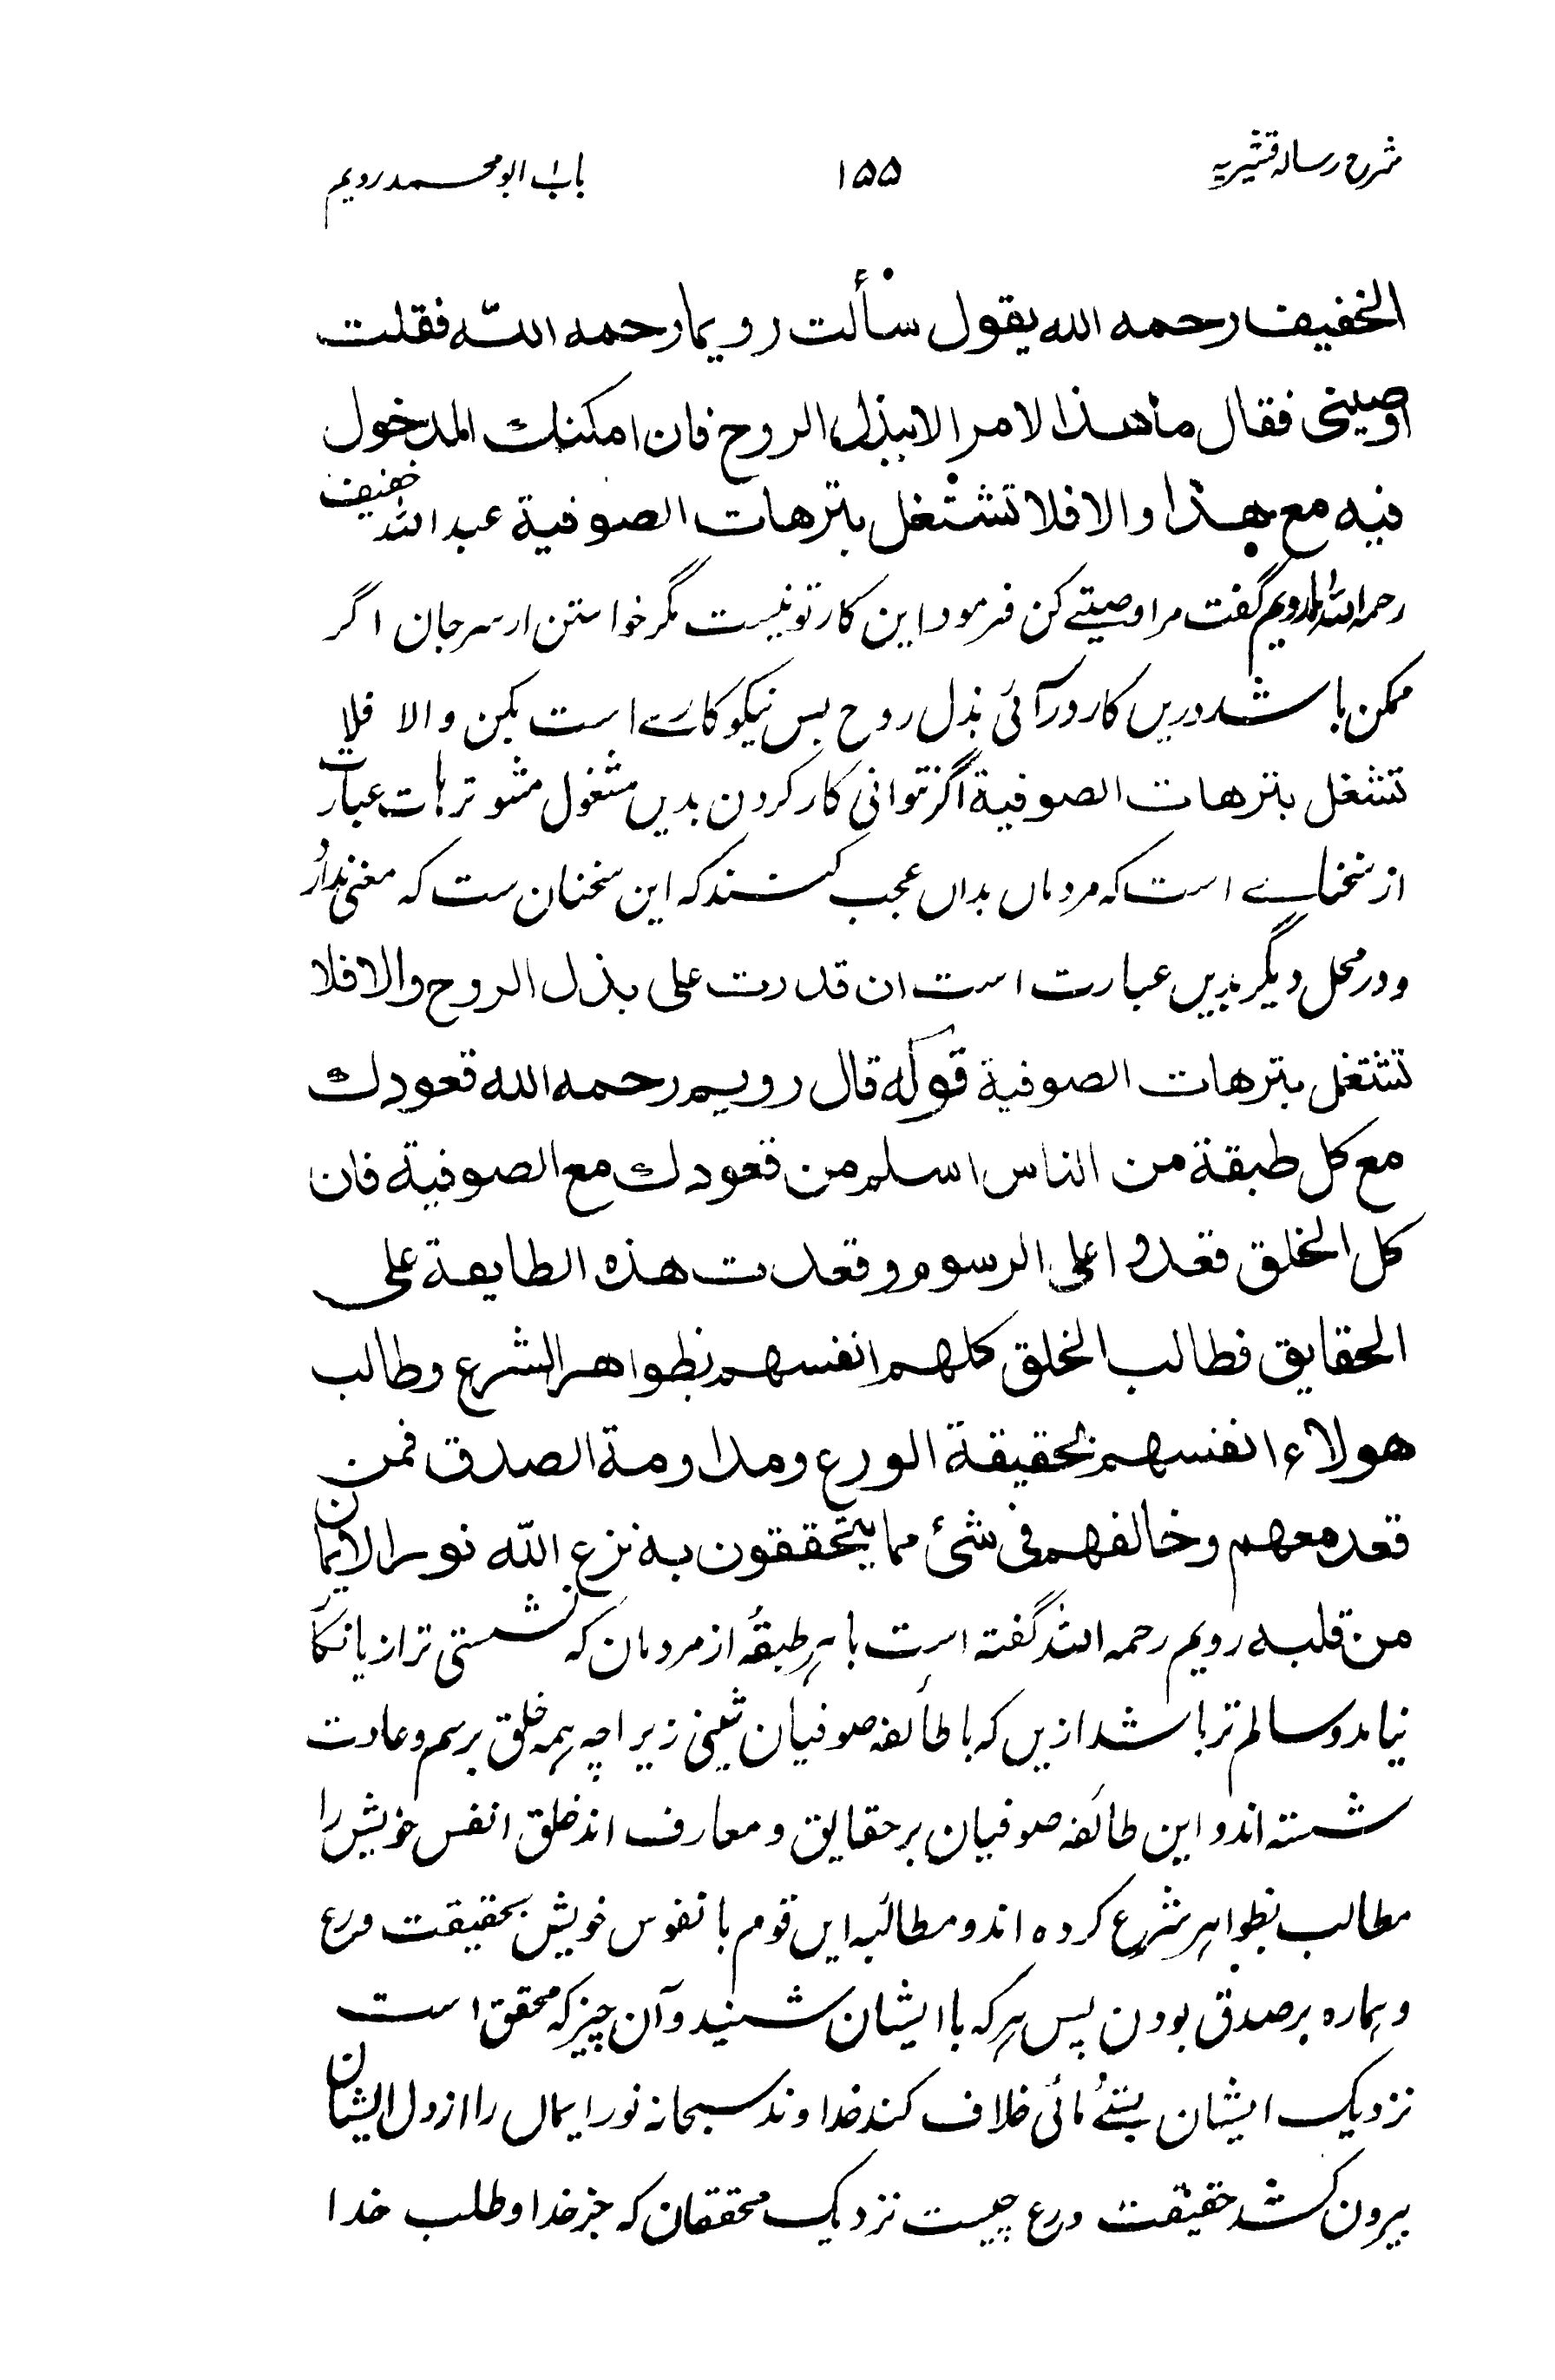 شرح رسالہ قشیریہ ۱۵۵ باب ابو محمد رویم
الخفیف رحمه الله یقول سألت رویما رحمه اللّه فقلت
اوصینی فقال ما هذا الامر الا ببذل الروح فان امکنك الدخول
فیه مع هذا والا فلا تشتغل بترهات الصوفیة عبد الله خفیف
رحمہ اللہ با رویم گفت مرا وصیتے کن فرمود این کار تو نیست مگر خواستن ار سر جان اگر
ممکن باشد دریں کار در آئی بذل روح بس نیکو کارے است بکن والا فلا
تشغل بترهات الصوفیة اگر نتوانی کار کردن بدیں مشغول مشو ترہات عبارت
از سخنانے است کہ مردماں بداں عجب کنند کہ این سخنان ست کہ معنی ندارد
و در محل دیگر بدیں عبارت است ان قدرت علی بذل الروح والا فلا
تشتغل بترهات الصوفیة قوله قال رویم رحمه الله قعودك
مع کل طبقة من الناس اسلم من قعودك مع الصوفیة فان
کل الخلق قعدوا علی الرسوم وقعدت هذه الطایفة علی
الحقایق فطالب الخلق کلهم انفسهم بظواهر الشرع وطالب
هولاء انفسهم بحقیقة الورع ومداومة الصدق فمن
قعد معهم وخالفهم فی شئ مما یتحققون به نزع اللّه نور الایمان
من قلبه رویم رحمہ اللہ گفتہ است با ہر طبقۂ از مردمان کہ نشستی ترا زیانکا
نیاید و سالم تر باشد ازیں کہ با طائفہ صوفیان نشینی زیراچہ ہمہ خلق برسم و عادت
نشستہ اند و این طائفہ صوفیان بر حقایق و معارف اند خلق انفس خویش را
مطالب بظواہر شرع کردہ اند و مطالبہ ایں قوم با نفوس خویش بحقیقت ورع
و ہمارہ بر صدق بودن پس ہر کہ با ایشان نشیند و آن چیز کہ محقق است
نزدیک ایشان بشئے مائی خلاف کند خداوند سبحانہ نور ایماں را از دل ایشان
بیرون کشد حقیقت ورع چیست نزدیک محققان کہ جز خدا و طلب خدا